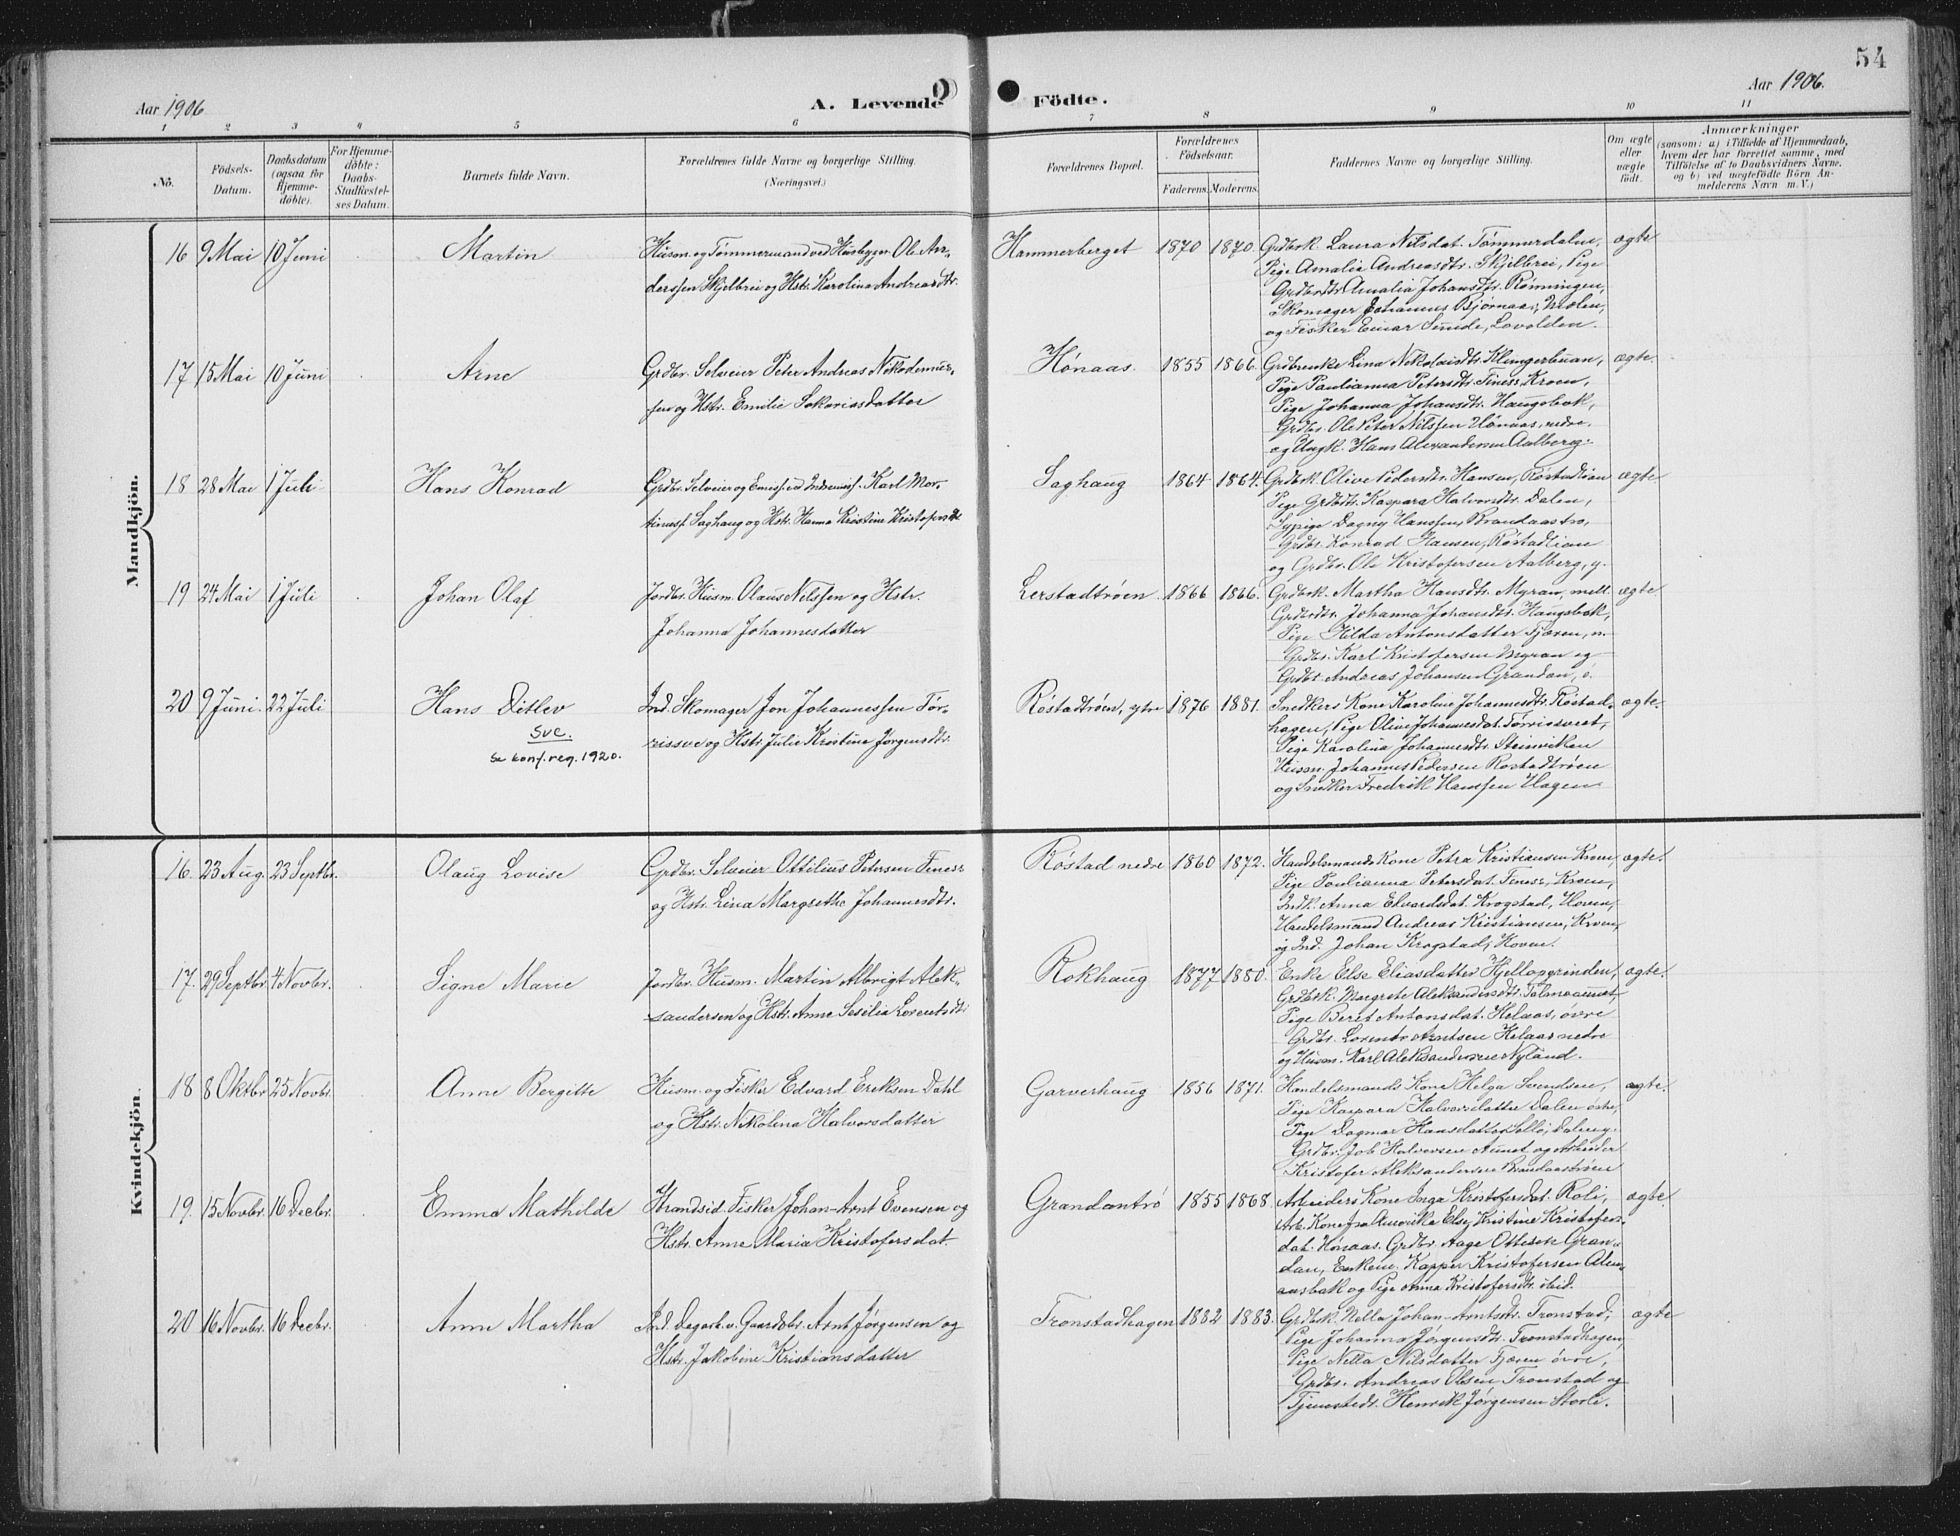 54
Aar 1906
A. Levende
Födte.
Aar 1906.
1 2 3 4 5 6 7 8 9 10 11
No.
Födsels-
Datum.
Daabsdatum
(ogsaa for
Hjemme-
döbte).
For Hjemme-
döbte:
Daabs-
Stadfæstel-
ses Datum.
Barnets fulde Navn.
Forældrenes fulde Navne og borgerlige Stilling.
(Næringsvei.)
Forældrenes Bopæl.
Forældrenes
Födselsaar.
Faderens. Moderens.
Faddernes Navne og borgerlig Stilling.
Om ægte
eller
uægte
født.
Anmærkninger
(saasom: a) i Tilfælde af Hjemmedaab,
hvem der har forrettet samme, med
Tilföielse af to Daabsvidners Navne,
og b) ved uægtefödte Börn An-
melderens Navn m. V.)
Mandkjön.
16 9 Mai 10 Juni Martin
Husm. og Tømmermand ved Husbyggn. Ole An-
derssen Skjelbrei og Hstr. Karolina Andreasdtr.
Hammerberget 1870 1870
Grdbrk. Laura Nilsdat. Tømmerdalen,
Pige Amalia Andreasdtr. Skjelbrei, Pige
Grdbrdtr. Amalia Johansdtr. Rønningen,
Skomager Johannes Bjørnaas, Mælen,
og Fisker Einar Smide, Lovolden.
ægte
17 15 Mai 10 Juni Arne
Grdbr. Selveier Peter Andreas Nikodemus-
sen og Hstr. Emilie Sakariasdatter
Hønaas. 1855 1866.
Grdbrenke Lina Nikolaisdtr. Klingerbuan,
Pige Paulianna Petersdtr. Finess, Kroen,
Pige Johanna Johansdtr. Haugsbak,
Grdbr. Ole Peter Nilssen Hønaas, nedre.
og Ungk. Hans Alexandersen Aalberg.
ægte.
18 28 Mai 1 Juli Hans Konrad
Grdbr. Selveier og Emisf. ved Indremisf. Karl Mor-
tinusf. Saghaug og Hstr. Hanna Kristine Kristofersdtr
Saghaug 1864 1864.
Grdbrk. Olive Pedersdtr. Hansen, Røstadlian
Pige Grdbdtr. Kaspara Halvorsdtr. Dalen,
Sypige Dagny Hanssen, Brandaastrø,
Grdbr. Konrad Hansen, Røstadlian
og Grdbr. Ole Kristofersen Aalberg, y.
ægte.
19 24 Mai 1 Juli Johan Olaf
Jordbr. Husm. Olaus Nilssen og Hstr.
Johanna Johannesdatter
Lerstadtrøen. 1866 1866.
Grdbrk. Martha Hansdtr. Myran, mell.
Grdbrdtr. Johanna Johansdtr. Haugsbak,
Pige Hilda Antonsdatter Fjæren, n.
Grdbr. Karl Kristofersen Myran og
Grdbr. Andreas Johansen Grandan, i.
ægte.
20 9 Juni. 22 Juli Hans Ditlev
Sve.
Se konf. reg. 1920.
Ind. Skomager Jon Johannessen Tør-
rissve og Hstr. Julie Kristine Jørgensdtr.
Røstadtrøen, ytre 1876 1881.
Snedkers Kone Karoline Johannesdtr. Røstad-
hagen, Pige Olive Johannesdat. Tørrissveet,
Pige Karolina Johannesdtr. Steinviken
Husm. Johannes Pedersen Røstadtrøen
og Snedker Fredrik Hanssen Hagen.
ægte.
Kvindekjön.
16. 23 Aug. 23 Septbr. Olaug Lovise
Grdbr. Selveier Ottilius Petersen Finess
og Hstr. Lina Margrethe Johannesdtr.
Røstad nedre 1860 1872.
Handelsmands Kone Petra Kristiansen Kroen,
Pige Paulianna Petersdat. Finess, Kroen,
Indk. Anna Edvardsdat. Krogstad, Hoven,
Handelsmand Andreas Kristiansen, Kroen,
og Ind. Johan Krogstad, Hoven.
ægte.
17. 29 Septbr. 4 Novbr. Signe Marie
Jordbr. Husm. Martin Albrigt Alek-
sandersen og Hstr. Anne Sesilia Lorentsdtr
Rokhaug 1877 1880.
Enke Else Eliasdatter Hjellopgrinden,
Grdbrk. Margrete Aleksandersdtr. Tolmoaunet,
Pige Beret Antonsdat. Helaas, øvre
Grdbr. Lorents Arntsen Helaas nedre
og Husm. Karl Aleksandersen Nyland.
ægte.
18 8 Oktbr 25 Novbr. Anne Bergitte
Husm. og Fisker Edvard Eriksen Dahl
og Hstr. Nikolina Halvorsdatter
Garverhaug 1856 1871.
Handelsmands Kone Helga Svendsen,
Pige Kaspara Halvorsdatter Dalen østre,
Pige Dagmar Hansdatter Sollø, Dalen y.
Grdbr. Job Halvorsen Aunet og Arbeider
Kristofer Aleksandersen Brandaastrøen
ægte.
19. 15 Novbr. 16 Decbr. Emma Mathilde
Strandsid. Fisker Johan Arnt Evensen og
Hstr. Anne Maria Kristofersdat.
Grandantrø 1855 1868.
Arbeiders Kone Inga Kristofersdat. Roli,
Arb. Kone fra Amerika Else Kristine Kristofers-
dat. Hønaas. Grdbr. Aage Ottesen Gran-
dan, Enkem. Kasper Kristofersen Alem-
ansbak og Pige Anna Kristofersdtr. ibid.
ægte.
20 16 Novbr. 16 Decbr. Anne Martha
Ind. Dagarb. v. Gaardsbr. Arnt Jørgensen og
Hstr. Jakobine Kristiansdatter
Tronstadhagen 1882 1883.
Grdbrk. Nella Johan-Arntsdtr. Tronstad,
Pige Johanna Jørgensdtr. Tronstadhagen,
Pige Nella Nilsdatter Fjæren øvre,
Grdbr. Andreas Olsen Tronstad og
Tjenestedr. Henrik Jørgensen Storle.
ægte